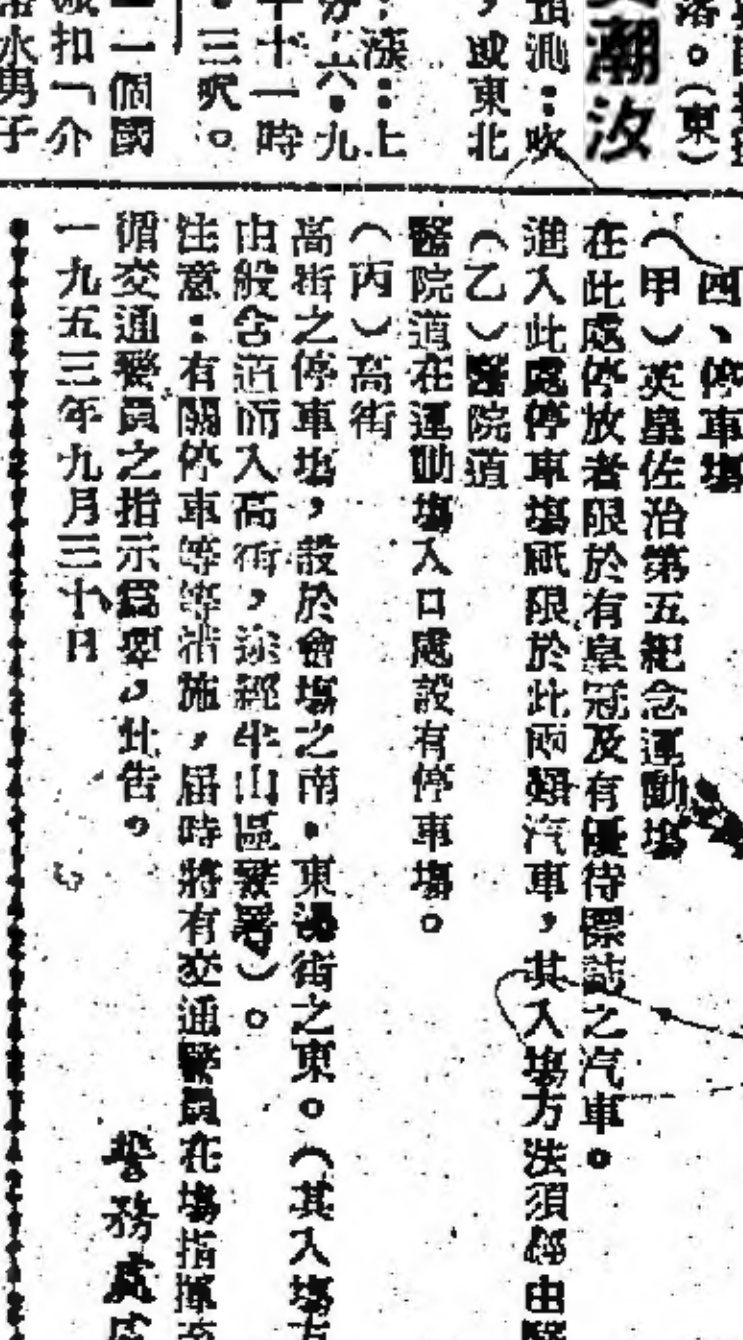 落。(東)
潮汐
預測:吹
,或東北
漲:上
六·九
十一時
三呎。
一個國
扣「介
水男子
四、停車場
(甲)英皇佐治第五紀念運動場
在此處停放者限於有皇冠及有優待標誌之汽車。
進入此處停車場祇限於此兩類汽車,其入場方法須經由醫
(乙)醫院道
醫院道在運動場入口處設有停車場。
(丙)高街
高街之停車場,設於會場之南,東邊街之東。(其入場方
由般含道而入高街,途經半山區警署)。
注意:有關停車等等措施,屆時將有交通警員在場指揮
循交通警員之指示爲要,此告。
警務處
一九五三年九月三十日